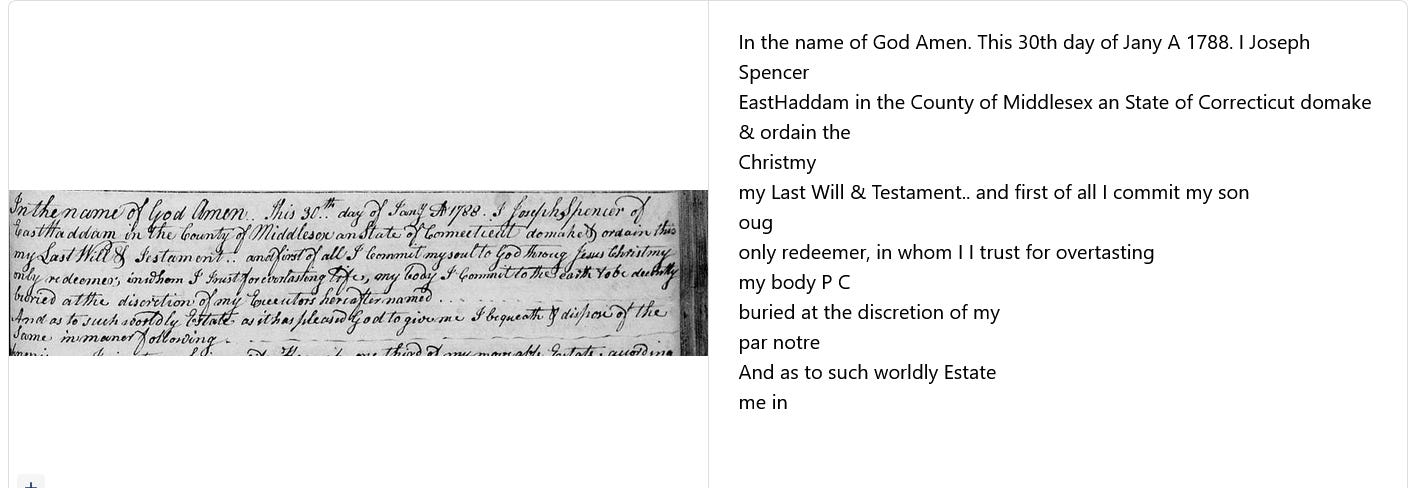 In the name of God Amen.. This 30.th day of Jany A 1788.. I Joseph Spencer of
EastHaddam in the County of Middlesex an State of Connecticutt domake & ordain this
my Last Will & Testament.. and first of all I Commit my soul to God throug Jesus Christ my
only redeemer, in whom I Trust for everlasting Life, my body I Commit to the earth to be decently
buried at the discretion of my Executors hereafter named . . . .
And as to such worldly Estate as it has pleased God to give me I bequeath & dispose of the
Same in maner following .
one third of my moveable Estate, acording
In the name of God Amen. This 30th day of Jany A 1788. I Joseph
Spencer
EastHaddam in the County of Middlesex an State of Correcticut domake
& ordain the
Christmy
my Last Will & Testament.. and first of all I commit my son
oug
only redeemer, in whom I I trust for overtasting
my body P C
buried at the discretion of my
par notre
And as to such worldly Estate
me in